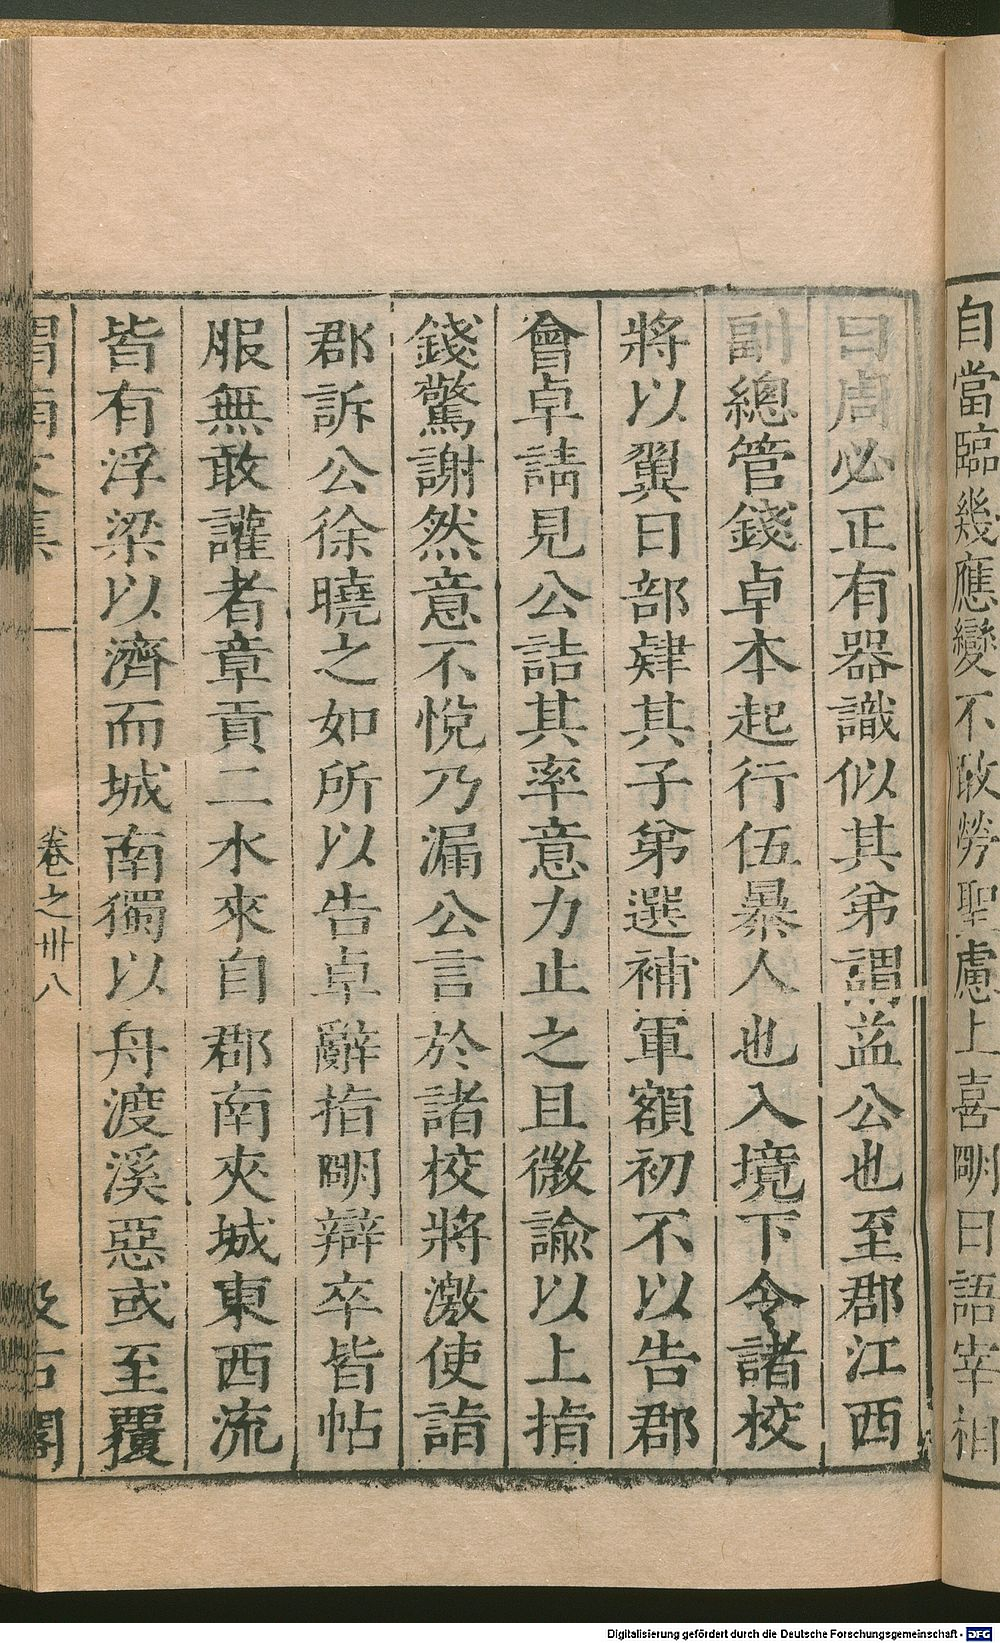 自當臨幾應變不敢勞聖慮上喜明日語宰相
曰周必正有器識似其弟謂益公也至郡江西
副總管錢卓本起行伍暴人也入境下令諸校
將以翼日部肄其子弟選補軍額初不以告郡
會卓請見公詰其率意力止之且微諭以上指
錢驚謝然意不悅乃漏公言於諸校將激使詣
郡訴公徐曉之如所以告卓辭指明辯卒皆帖
服無敢讙者章貢二水來自郡南夾城東西流
皆有浮梁以濟而城南獨以舟渡溪惡或至覆
渭南文集 卷之卅八 汲古閣
Digitalisierung gefördert durch die Deutsche Forschungsgemeinschaft - DFG